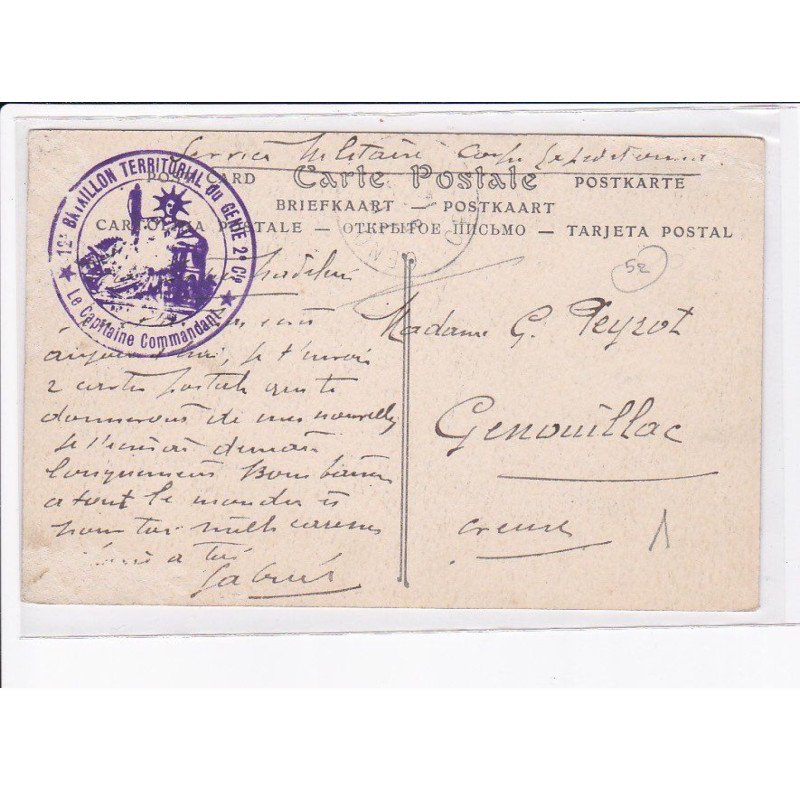 Service Militaire Corps Expéditionnaire
POST CARD Carte Postale POSTKARTE
BRIEFKAART — POSTKAART
CARTOLINA POSTALE — ОТКРЫТОЕ ПИСЬМО — TARJETA POSTAL
12e BATAILLON TERRITORIAL DU GENIE 2e Cie
Le Capitaine Commandant
52
aujourd'hui, je t'envoie
2 cartes postale que te
donnerons de mes nouvelles
je t'écrirai demain
longuement Bons baisers
a tout le monde et
pour toi mille caresses
a toi
Gabriel
Madame G. Peyrot
Genouillac
Creuse